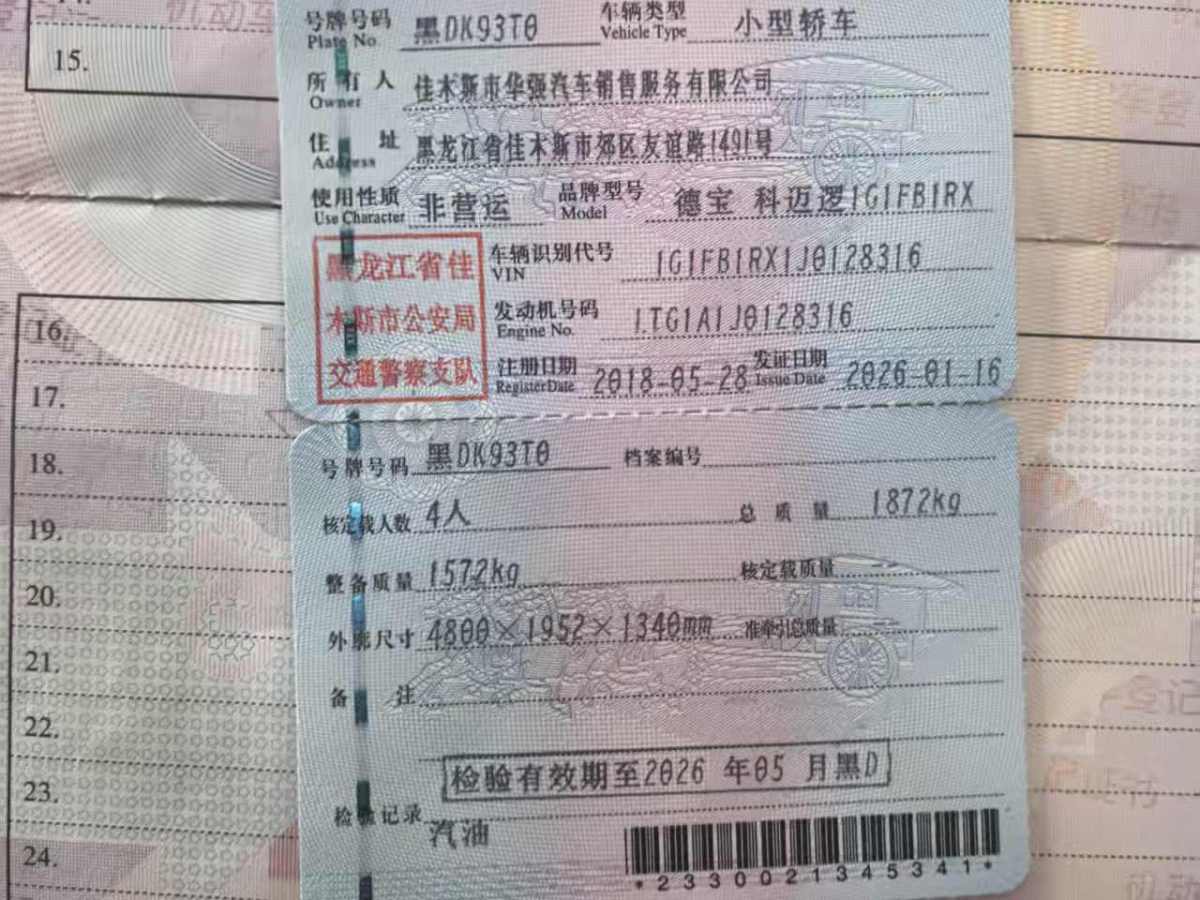 15.
号牌号码 黑DK93T0 车辆类型 小型轿车
Plate No. Vehicle Type
所有人 佳木斯市华强汽车销售服务有限公司
Owner
住址 黑龙江省佳木斯市郊区友谊路1491号
Address
使用性质 非营运 品牌型号 德宝 科迈逻1G1FB1RX
Use Character Model
黑龙江省佳
木斯市公安局
交通警察支队
车辆识别代号 1G1FB1RX1J0128316
VIN
发动机号码 LTG1A1J0128316
Engine No.
注册日期 2018-05-28 发证日期 2026-01-16
Register Date Issue Date
16.
17.
18.
19.
20.
21.
22.
23.
24.
号牌号码 黑DK93T0 档案编号
核定载人数 4人 总质量 1872kg
整备质量 1572kg 核定载质量
外廓尺寸 4800×1952×1340mm 准牵引总质量
备注
检验有效期至2026 年05 月黑D
检验记录
汽油
*2330021345341*